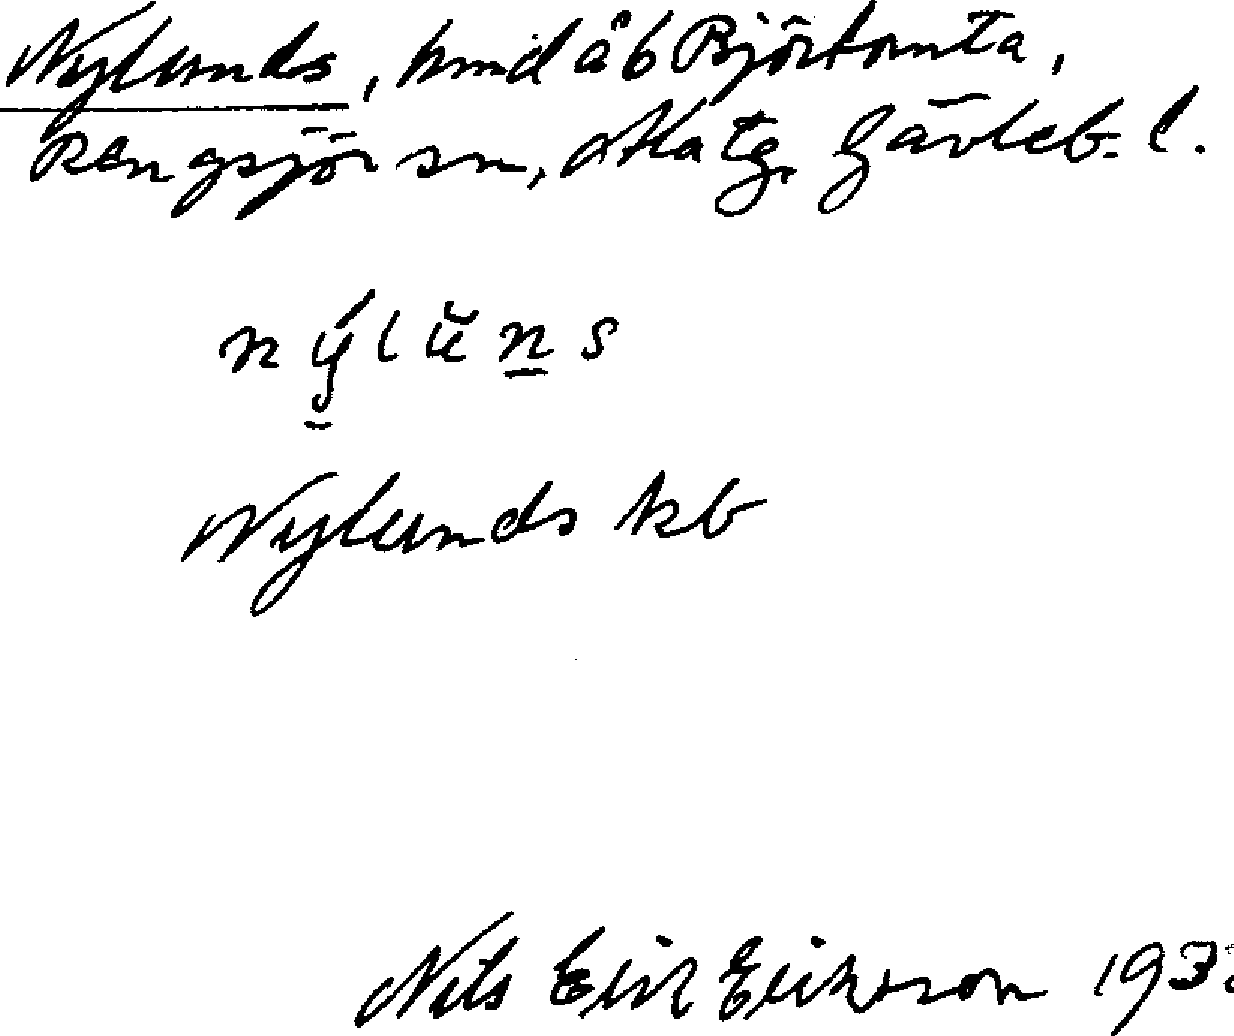 Nylunds, hmd åb Björtomta,
Rengsjö sn, Gävleb. l.
nýlŭn̲s
Nylunds kb
Nils Erik Eriksson